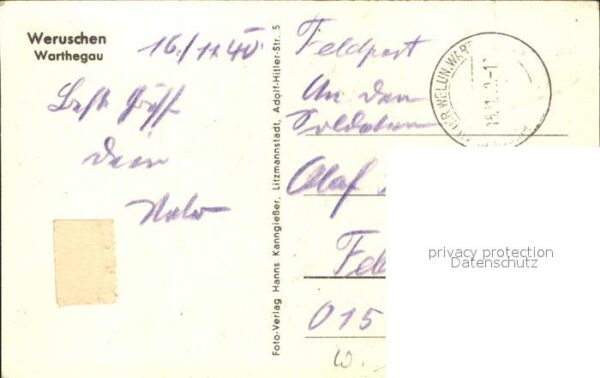 Weruschen
Warthegau
16./11.40
Beste Grüße
Dein
Foto-Verlag Hanns Kanngießer, Litzmannstadt, Adolf-Hitler-Str. 5
Feldpost
An den
Soldaten
Olaf
015
W.
WELUN
privacy protection
Datenschutz